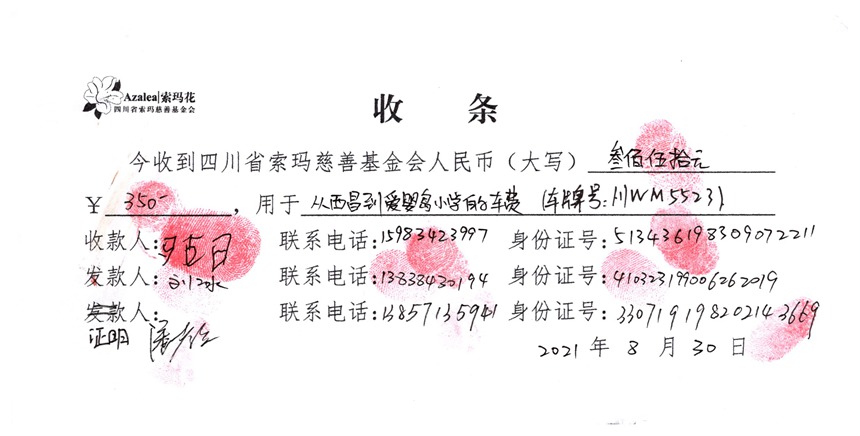 Azalea|索玛花
四川省索玛慈善基金会
收 条
今收到四川省索玛慈善基金会人民币（大写） 叁佰伍拾元
¥ 350- ，用于 从西昌到爱婴岛小学的车费 （车牌号:川WM5523）
收款人: 联系电话:15983423997 身份证号:513436198309072211
发款人: 联系电话:13838430194 身份证号:410323199006262019
发款人: 联系电话:13857135941 身份证号:330719198202143669
证明
2021 年 8 月 30 日